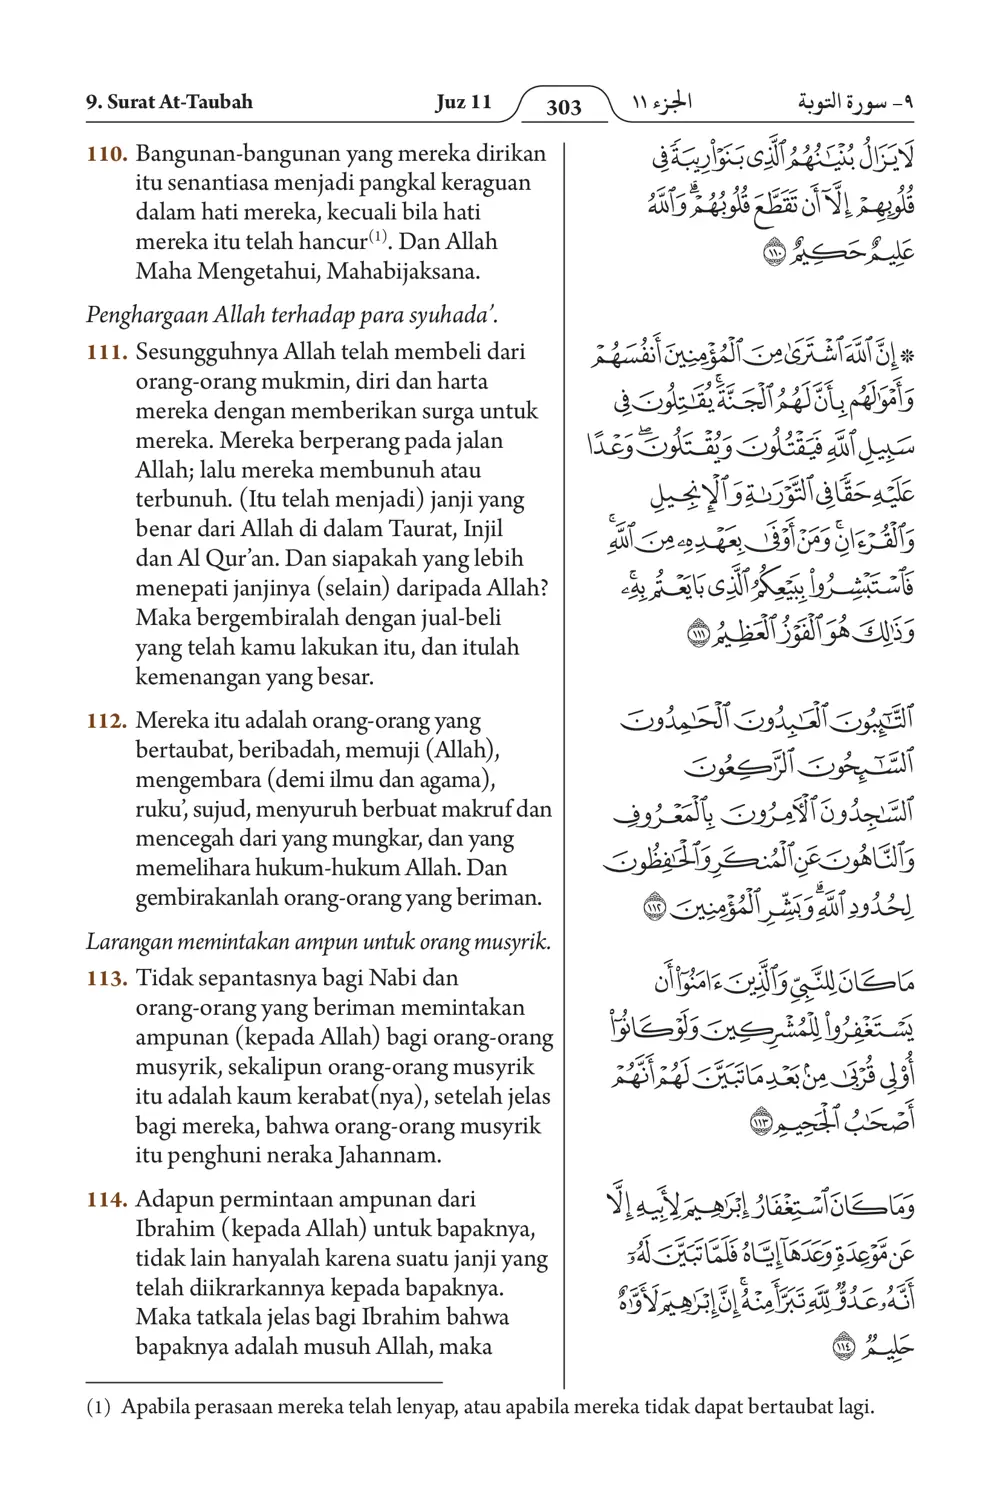 9. Surat At-Taubah Juz 11 303 الجزء ١١ ٩- سورة التوبة
110. Bangunan-bangunan yang mereka dirikan
itu senantiasa menjadi pangkal keraguan
dalam hati mereka, kecuali bila hati
mereka itu telah hancur(1). Dan Allah
Maha Mengetahui, Mahabijaksana.
Penghargaan Allah terhadap para syuhada’.
111. Sesungguhnya Allah telah membeli dari
orang-orang mukmin, diri dan harta
mereka dengan memberikan surga untuk
mereka. Mereka berperang pada jalan
Allah; lalu mereka membunuh atau
terbunuh. (Itu telah menjadi) janji yang
benar dari Allah di dalam Taurat, Injil
dan Al Qur’an. Dan siapakah yang lebih
menepati janjinya (selain) daripada Allah?
Maka bergembiralah dengan jual-beli
yang telah kamu lakukan itu, dan itulah
kemenangan yang besar.
112. Mereka itu adalah orang-orang yang
bertaubat, beribadah, memuji (Allah),
mengembara (demi ilmu dan agama),
ruku’, sujud, menyuruh berbuat makruf dan
mencegah dari yang mungkar, dan yang
memelihara hukum-hukum Allah. Dan
gembirakanlah orang-orang yang beriman.
Larangan memintakan ampun untuk orang musyrik.
113. Tidak sepantasnya bagi Nabi dan
orang-orang yang beriman memintakan
ampunan (kepada Allah) bagi orang-orang
musyrik, sekalipun orang-orang musyrik
itu adalah kaum kerabat(nya), setelah jelas
bagi mereka, bahwa orang-orang musyrik
itu penghuni neraka Jahannam.
114. Adapun permintaan ampunan dari
Ibrahim (kepada Allah) untuk bapaknya,
tidak lain hanyalah karena suatu janji yang
telah diikrarkannya kepada bapaknya.
Maka tatkala jelas bagi Ibrahim bahwa
bapaknya adalah musuh Allah, maka
لَا يَزَالُ بُنْيَٰنُهُمُ ٱلَّذِى بَنَوْا۟ رِيبَةً فِى
قُلُوبِهِمْ إِلَّآ أَن تَقَطَّعَ قُلُوبُهُمْ ۗ وَٱللَّهُ
عَلِيمٌ حَكِيمٌ ١١٠
۞ إِنَّ ٱللَّهَ ٱشْتَرَىٰ مِنَ ٱلْمُؤْمِنِينَ أَنفُسَهُمْ
وَأَمْوَٰلَهُم بِأَنَّ لَهُمُ ٱلْجَنَّةَ ۚ يُقَٰتِلُونَ فِى
سَبِيلِ ٱللَّهِ فَيَقْتُلُونَ وَيُقْتَلُونَ ۖ وَعْدًا
عَلَيْهِ حَقًّا فِى ٱلتَّوْرَىٰةِ وَٱلْإِنجِيلِ
وَٱلْقُرْءَانِ ۚ وَمَنْ أَوْفَىٰ بِعَهْدِهِۦ مِنَ ٱللَّهِ ۚ
فَٱسْتَبْشِرُوا۟ بِبَيْعِكُمُ ٱلَّذِى بَايَعْتُم بِهِۦ ۚ
وَذَٰلِكَ هُوَ ٱلْفَوْزُ ٱلْعَظِيمُ ١١١
ٱلتَّٰٓئِبُونَ ٱلْعَٰبِدُونَ ٱلْحَٰمِدُونَ
ٱلسَّٰٓئِحُونَ ٱلرَّٰكِعُونَ
ٱلسَّٰجِدُونَ ٱلْءَامِرُونَ بِٱلْمَعْرُوفِ
وَٱلنَّاهُونَ عَنِ ٱلْمُنكَرِ وَٱلْحَٰفِظُونَ
لِحُدُودِ ٱللَّهِ ۗ وَبَشِّرِ ٱلْمُؤْمِنِينَ ١١٢
مَا كَانَ لِلنَّبِىِّ وَٱلَّذِينَ ءَامَنُوٓا۟ أَن
يَسْتَغْفِرُوا۟ لِلْمُشْرِكِينَ وَلَوْ كَانُوٓا۟
أُو۟لِى قُرْبَىٰ مِنۢ بَعْدِ مَا تَبَيَّنَ لَهُمْ أَنَّهُمْ
أَصْحَٰبُ ٱلْجَحِيمِ ١١٣
وَمَا كَانَ ٱسْتِغْفَارُ إِبْرَٰهِيمَ لِأَبِيهِ إِلَّا
عَن مَّوْعِدَةٍ وَعَدَهَآ إِيَّاهُ فَلَمَّا تَبَيَّنَ لَهُۥٓ
أَنَّهُۥ عَدُوٌّ لِّلَّهِ تَبَرَّأَ مِنْهُ ۚ إِنَّ إِبْرَٰهِيمَ لَأَوَّٰهٌ
حَلِيمٌ ١١٤
(1) Apabila perasaan mereka telah lenyap, atau apabila mereka tidak dapat bertaubat lagi.